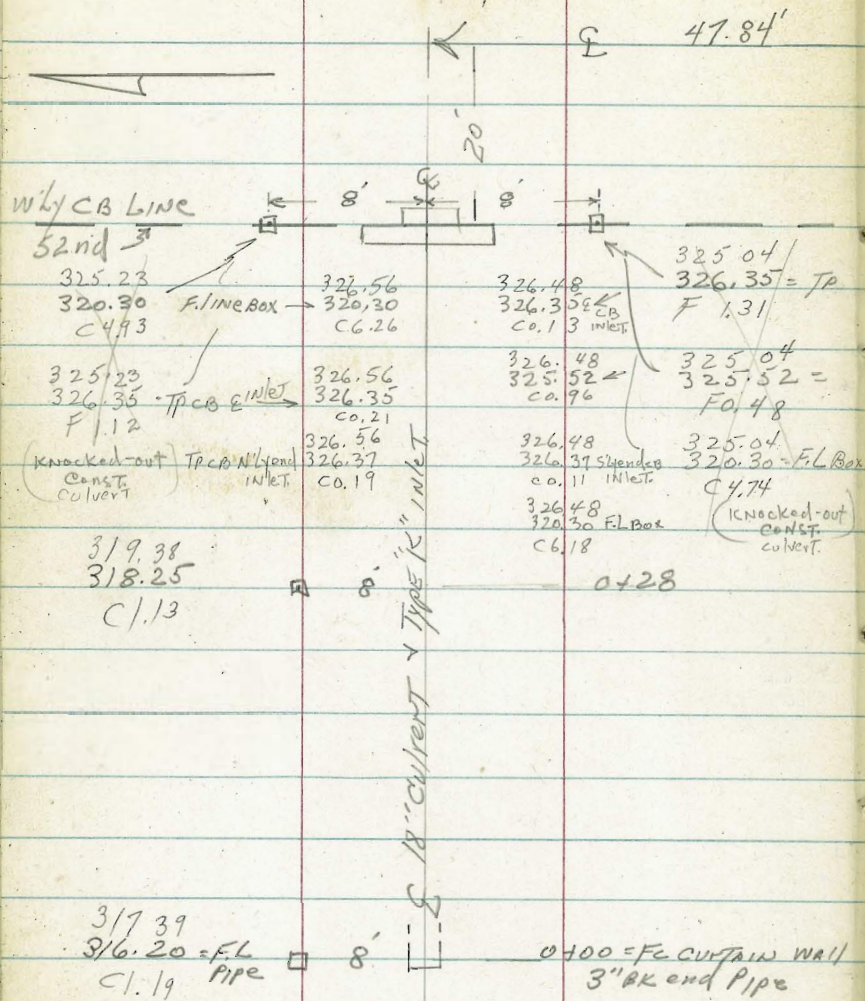 ℄ 47.84'
20'
℄
8' 8'
W'ly CB LINE
52nd
325.23
320.30
C4.93
F.LINE BOX
326.56
320.30
C6.26
326.48
326.35 ℄ CB
C0.13 INLET.
325 04
326.35 = TP
F 1.31
325.23
326.35 - TP CB ℄ INLET
F 1.12
326.56
326.35
C0.21
326.48
325.52
C0.96
325 04
325.52 =
F0.48
(KNocked-out
CONST.
Culvert)
TP CB N'lyend
INLET.
326.56
326.37
C0.19
326.48
326.37 S'lyend CB
C0.11 INLET.
325.04
320.30 = F.L Box
C4.74
(KNocked-out
CONST.
Culvert.)
326.48
320.30 F.L Box
C6.18
319.38
318.25
C1.13
8'
0+28
℄ 18" Culvert & Type "K" INLET
317 39
316.20 = F.L
Pipe
C1.19
8'
0+00 = FC CURTAIN WALL
3" BK end Pipe